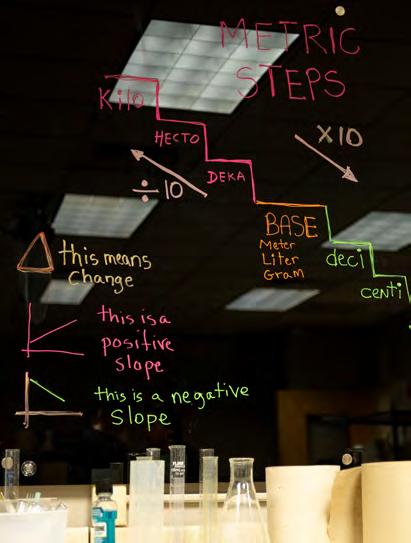 METRIC
STEPS
Kilo
HECTO
DEKA
X10
÷10
BASE
Meter
Liter
Gram
deci
centi
this means
change
this is a
positive
slope
this is a negative
Slope